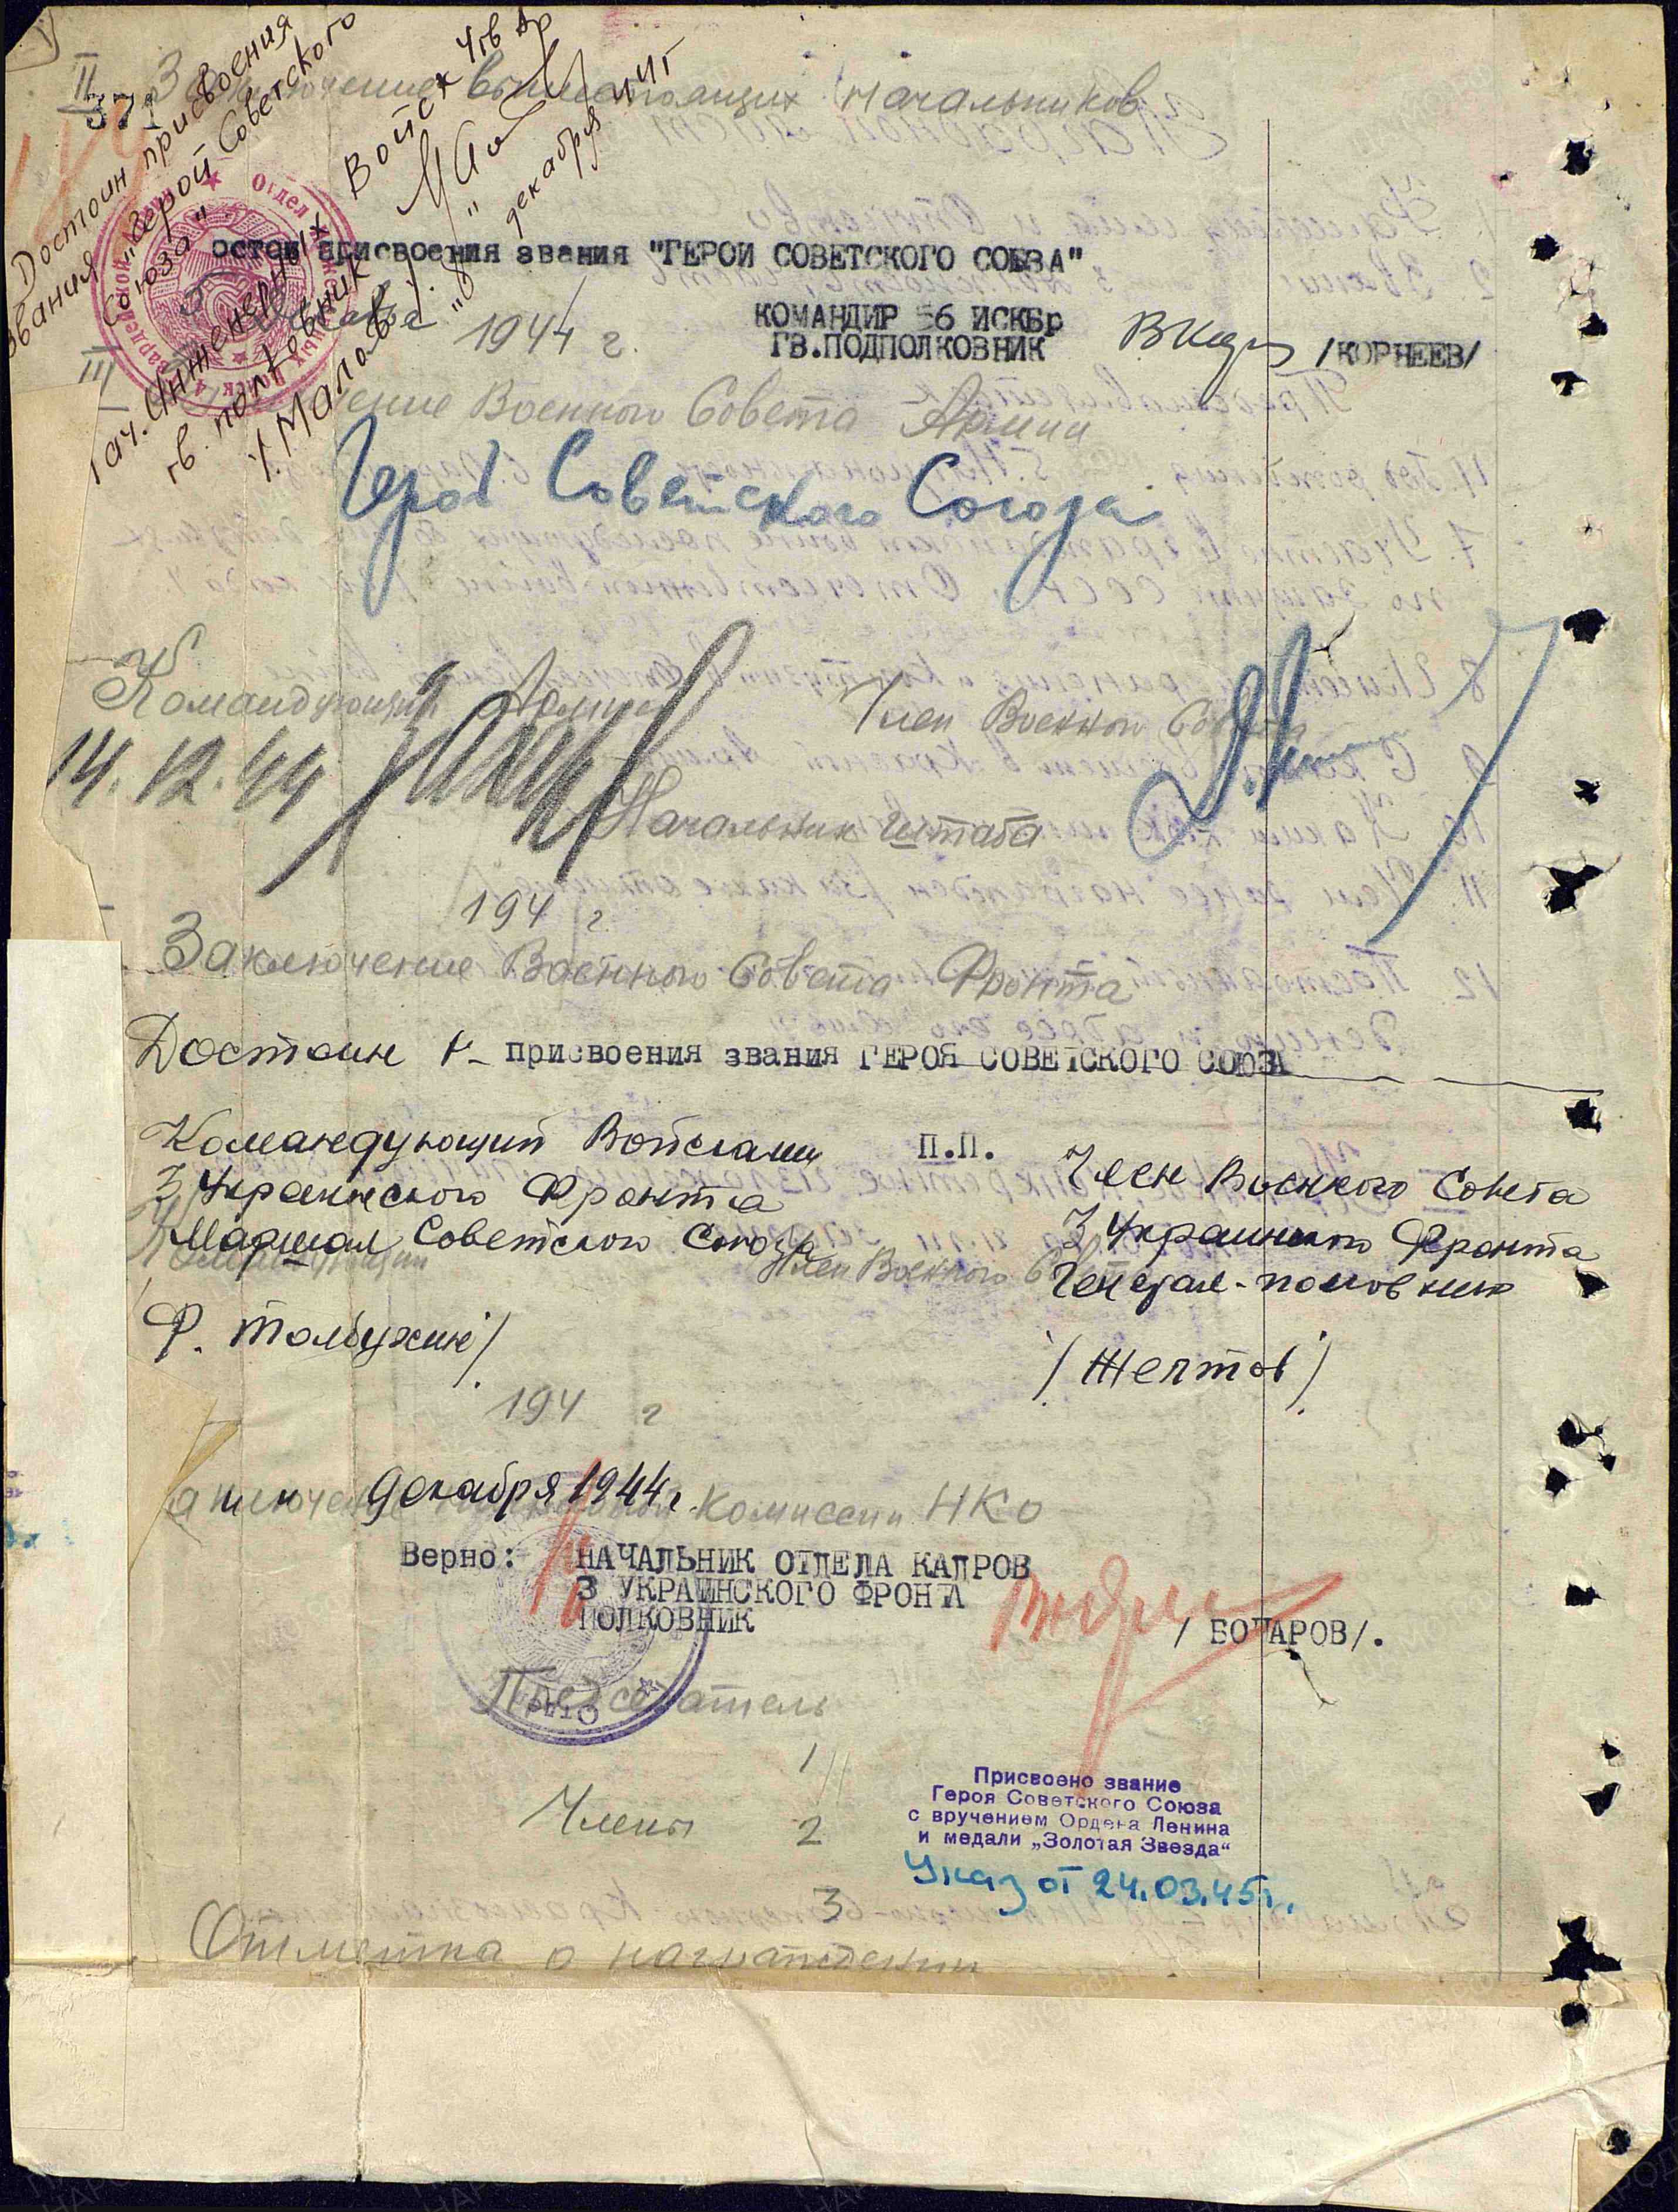 Достоин присвоения
звания "Герой Советского
Союза"
Нач. Инженерных Войск 4 гв Ар
гв. полковник
/Малов/
" " декабря 44г
II Заключение вышестоящих начальников
371
достоин присвоения звания "ГЕРОЙ СОВЕТСКОГО СОЮЗА"
КОМАНДИР 56 ИСКБр
ГВ.ПОДПОЛКОВНИК /КОРНЕЕВ/
1944 г.
III
Военного Совета Армии
Герой Советского Союза
Командующий Армией
Член Военного Совета
14.12.44
Начальник Штаба
194 г
Заключение Военного Совета Фронта
Достоин присвоения звания ГЕРОЯ СОВЕТСКОГО СОЮЗА
Командующий Войсками П.П. Член Военного Совета
3 Украинского Фронта 3 Украинского Фронта
Маршал Советского Союза Генерал-полковник
Командующий Член Военного
Ф. Толбухин/ /Желтов/
194 г
декабря 1944г. Комиссии НКО
Верно: НАЧАЛЬНИК ОТДЕЛА КАДРОВ
3 УКРАИНСКОГО ФРОНТА
ПОЛКОВНИК
/ БОДАРОВ/.
Председатель
1
Члены 2
3
Присвоено звание
Героя Советского Союза
с вручением Ордена Ленина
и медали „Золотая Звезда“
Указ от 24.03.45г.
Отметка о награждении